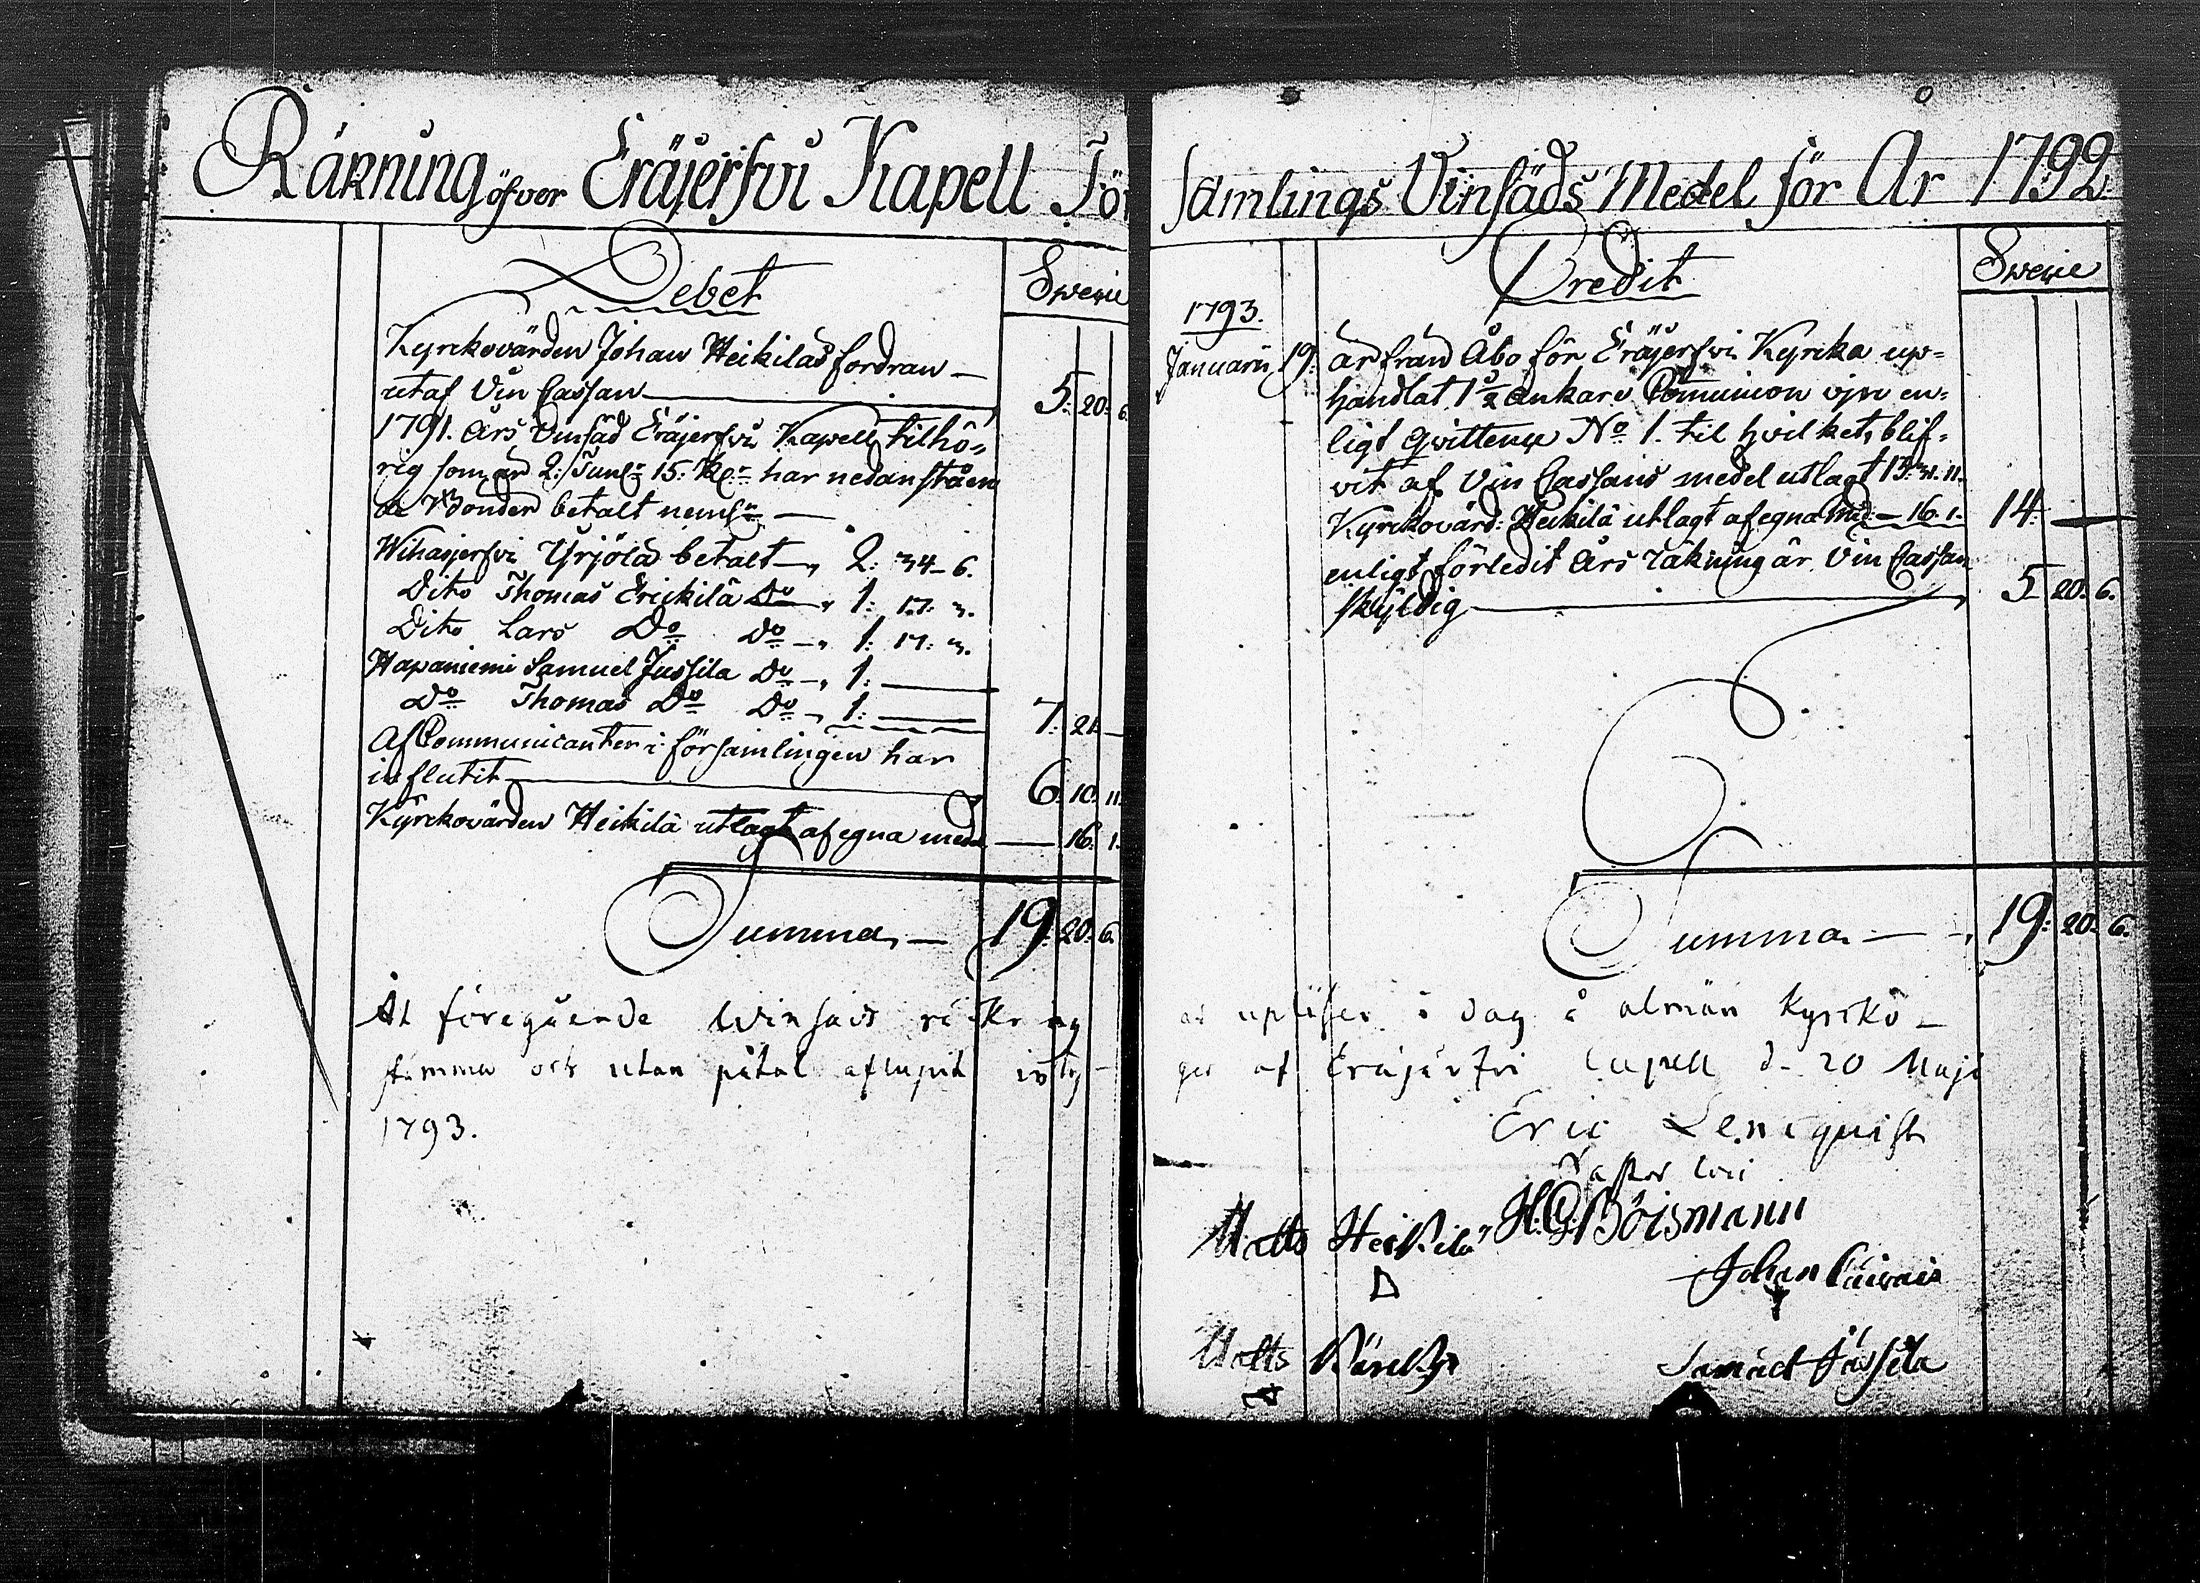 Räkning öfver Eräjerfvi Kapell För
samlings Vinsäds Medel för År 1792
Debet
Swerie
Kyrckovärden Johan Heikilas fordran
utaf Vin Cassan 5: 20: 6
1791. Års Vinsäd Eräjerfvi Kapell tilhö-
rig som är 2: Tun:r 15. K:r har nedanståen
de Bönder betalt neml:n
Wihasjerfvi Yrjölä betalt 2: 34 6.
Dito Thomas Erickilä Do 1: 17: 3.
Dito Lars Do Do 1: 17: 3.
Hapaniemi Samuel Jussila Do 1:
Do Thomas Do Do 1: 7: 21
Af Communicanter i församlingen har
influtit 6: 10: 11.
Kyrckovärden Heikilä utlagt af egna medel 16: 1.
Summa 19: 20: 6.
Atföregående Winsäds räkning
stämma och utan påtal aflupit inty
1793.
Credit
Swerie
1793.
Januarii 19. är från Åbo för Eräjerfvi Kyrcka up-
handlat 1 1/2 ankare Communion vjn en-
ligt qvittence No 1. til hvilket, blif-
vit af Vin Cassans medel utlagt 13: 31. 11.
Kyrckovärd: Heikilä utlagt af egna med: 16. 1. 14:
enligt förledit Års räkning är Vin Cassan
skyldig 5 20: 6.
Summa 19: 20: 6.
är upläsen i dag å almän Kyrcko-
gas af Eräjärfvi Capell d. 20 Maji
Eric Lencquist
Pastor loci
H. G. Böismann
Matts Heikilä
Johan Päivais
Matts
Samuel Jussila